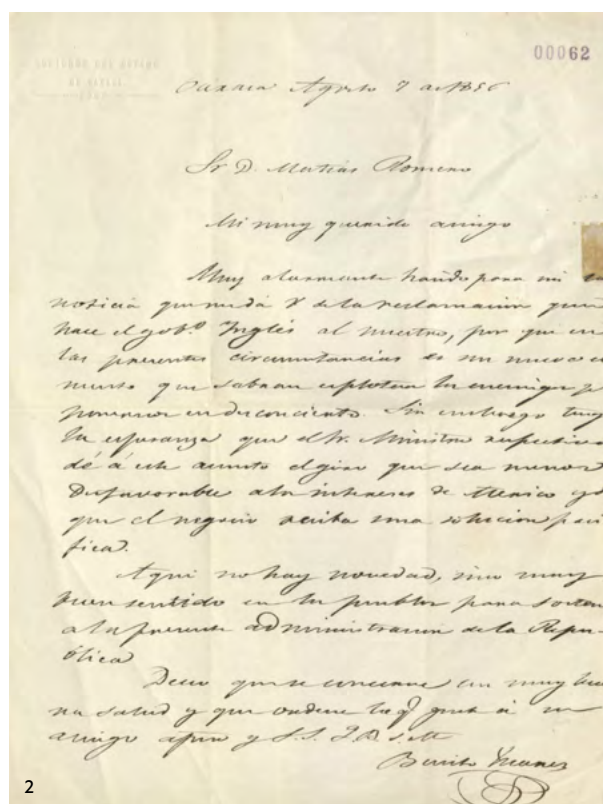 00062
Oaxaca Agosto 7 de 1856
Sr D. Matías Romero
Mi muy querido amigo
Muy alarmante ha sido para mi la
noticia que me dá V de la reclamacion que
hace el gobo. Inglés al nuestro, por que en
las presentes circunstancias es un nuevo
que sabran explotar los enemigos
Sin embargo tengo
la esperanza que el Sr. Ministro respectivo
dé á este asunto el giro que sea menos
desfavorable a los intereses de Mexico y
que el negocio reciba una solucion paci
fica.
Aqui no hay novedad, sino muy
buen sentido en los pueblos para sosten
a la presente administracion de la Repu-
blica
Deseo que se conserve con muy bue
na salud y que ordene lo q. guste á su
amigo afmo y S.S. Q.B.S.M
Benito Juarez
2